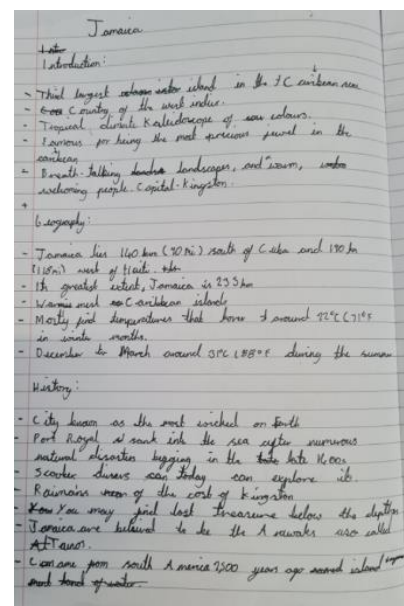 Jamaica
Introduction:
- Third largest island in the Caribbean sea
- Country of the west indies.
- Tropical climate Kaleidoscope of colours.
- Famous for being the most precious jewel in the
caribean
- Breath-talking landscapes, and warm,
welcoming people. Capital-Kingston.
Geography:
- Jamaica lies 140 km (90 mi) south of Cuba and 190 km
(118mi) west of Haiti.
- Its greatest extent, Jamaica is 235 km
- Caribbean islands
- Mostly find temperatures that hover around 22°C (71°F
in winter months.
- December to March around 31°C (88°F during the summer
History:
- City known as the most wicked on Earth
- Port Royal sank into the sea after numerous
natural disasters begging in the late 1600s
- Scoober divers can today can explore it.
- Raimains of the cost of Kingston
- You may find lost treasure below the depths
- Jamaica are belived to be the Arawaks aso called
Tainos.
- Came from south America 2,500 years ago island